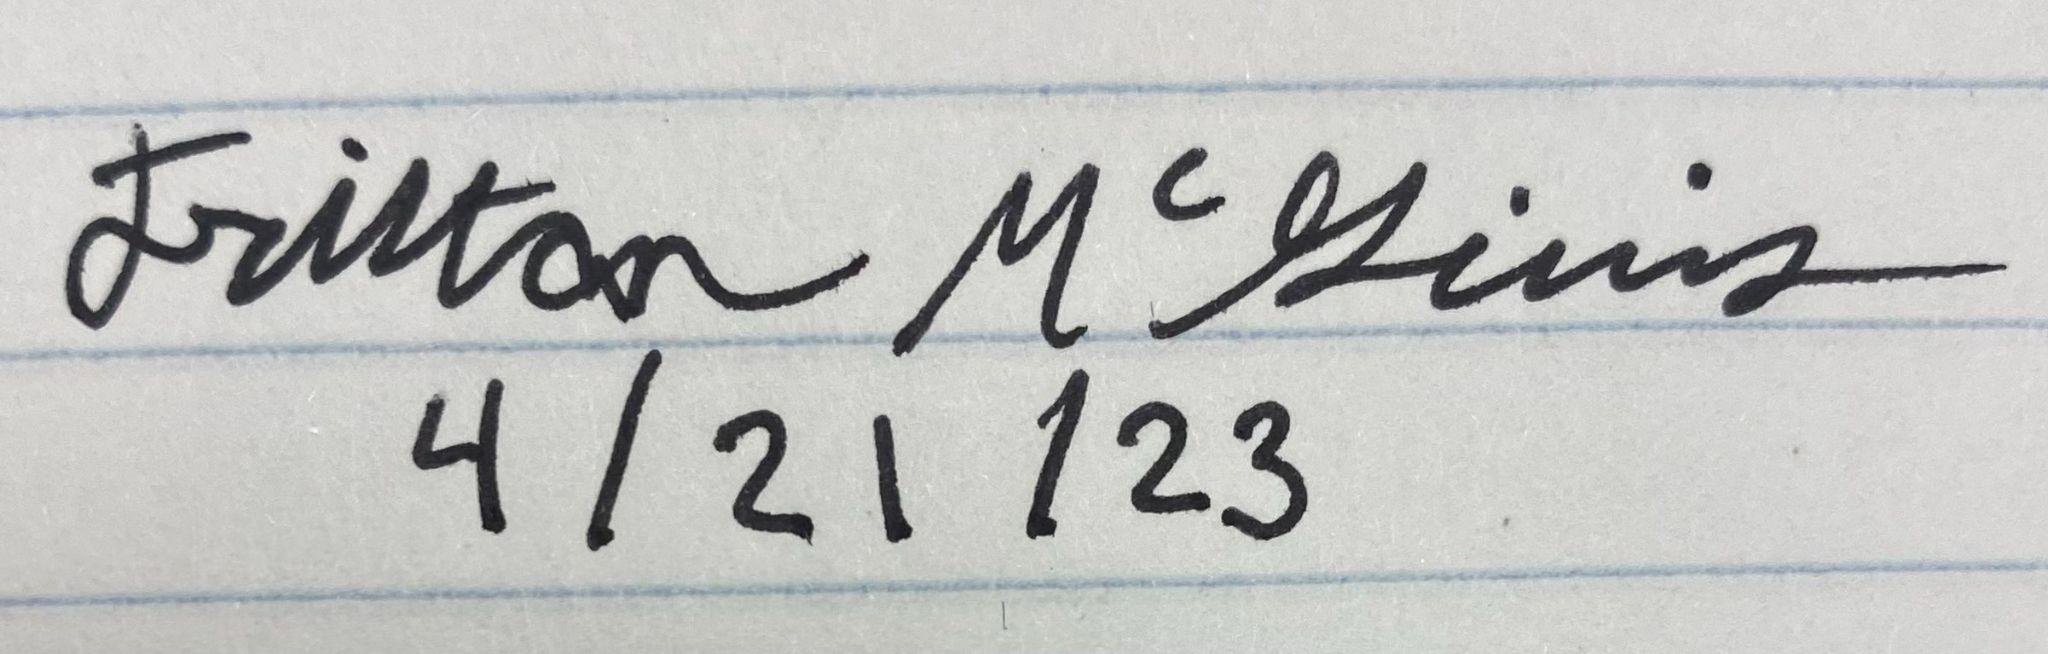 Tristan McGinis
4/21/23